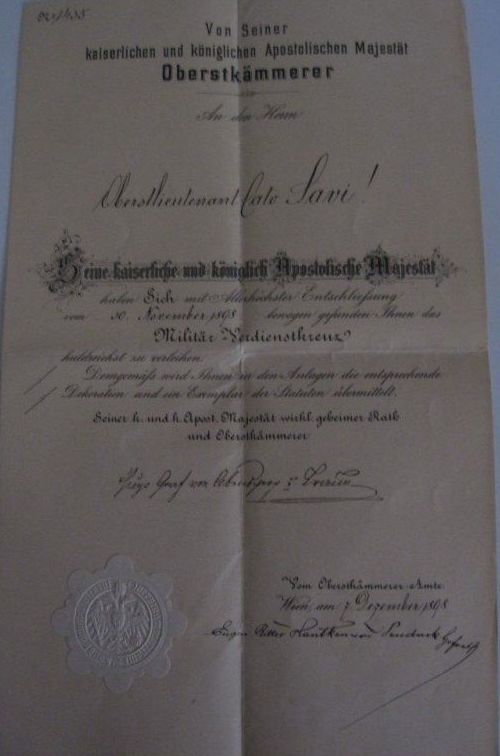 Von Seiner
kaiserlichen und königlichen Apostolischen Majestät
Oberstkämmerer
An den Herrn
Oberstlieutenant Cato Savi!
Seine kaiserliche und königlich Apostolische Majestät
haben Sich mit Allerhöchster Entschließung
vom 30. November 1898 bewogen gefunden Ihnen das
Militär-Verdienstkreuz
huldreichst zu verleihen.
Demgemäß wird Ihnen in den Anlagen die entsprechende
Dekoration und ein Exemplar der Statuten übermittelt.
Seiner k. und k. Apost. Majestät wirkl. geheimer Rath
und Oberstkämmerer
Hugo Graf von Abensperg u. Traun
Vom Oberstkämmerer-Amte.
Wien, am 7. Dezember 1898
Eugen Ritter